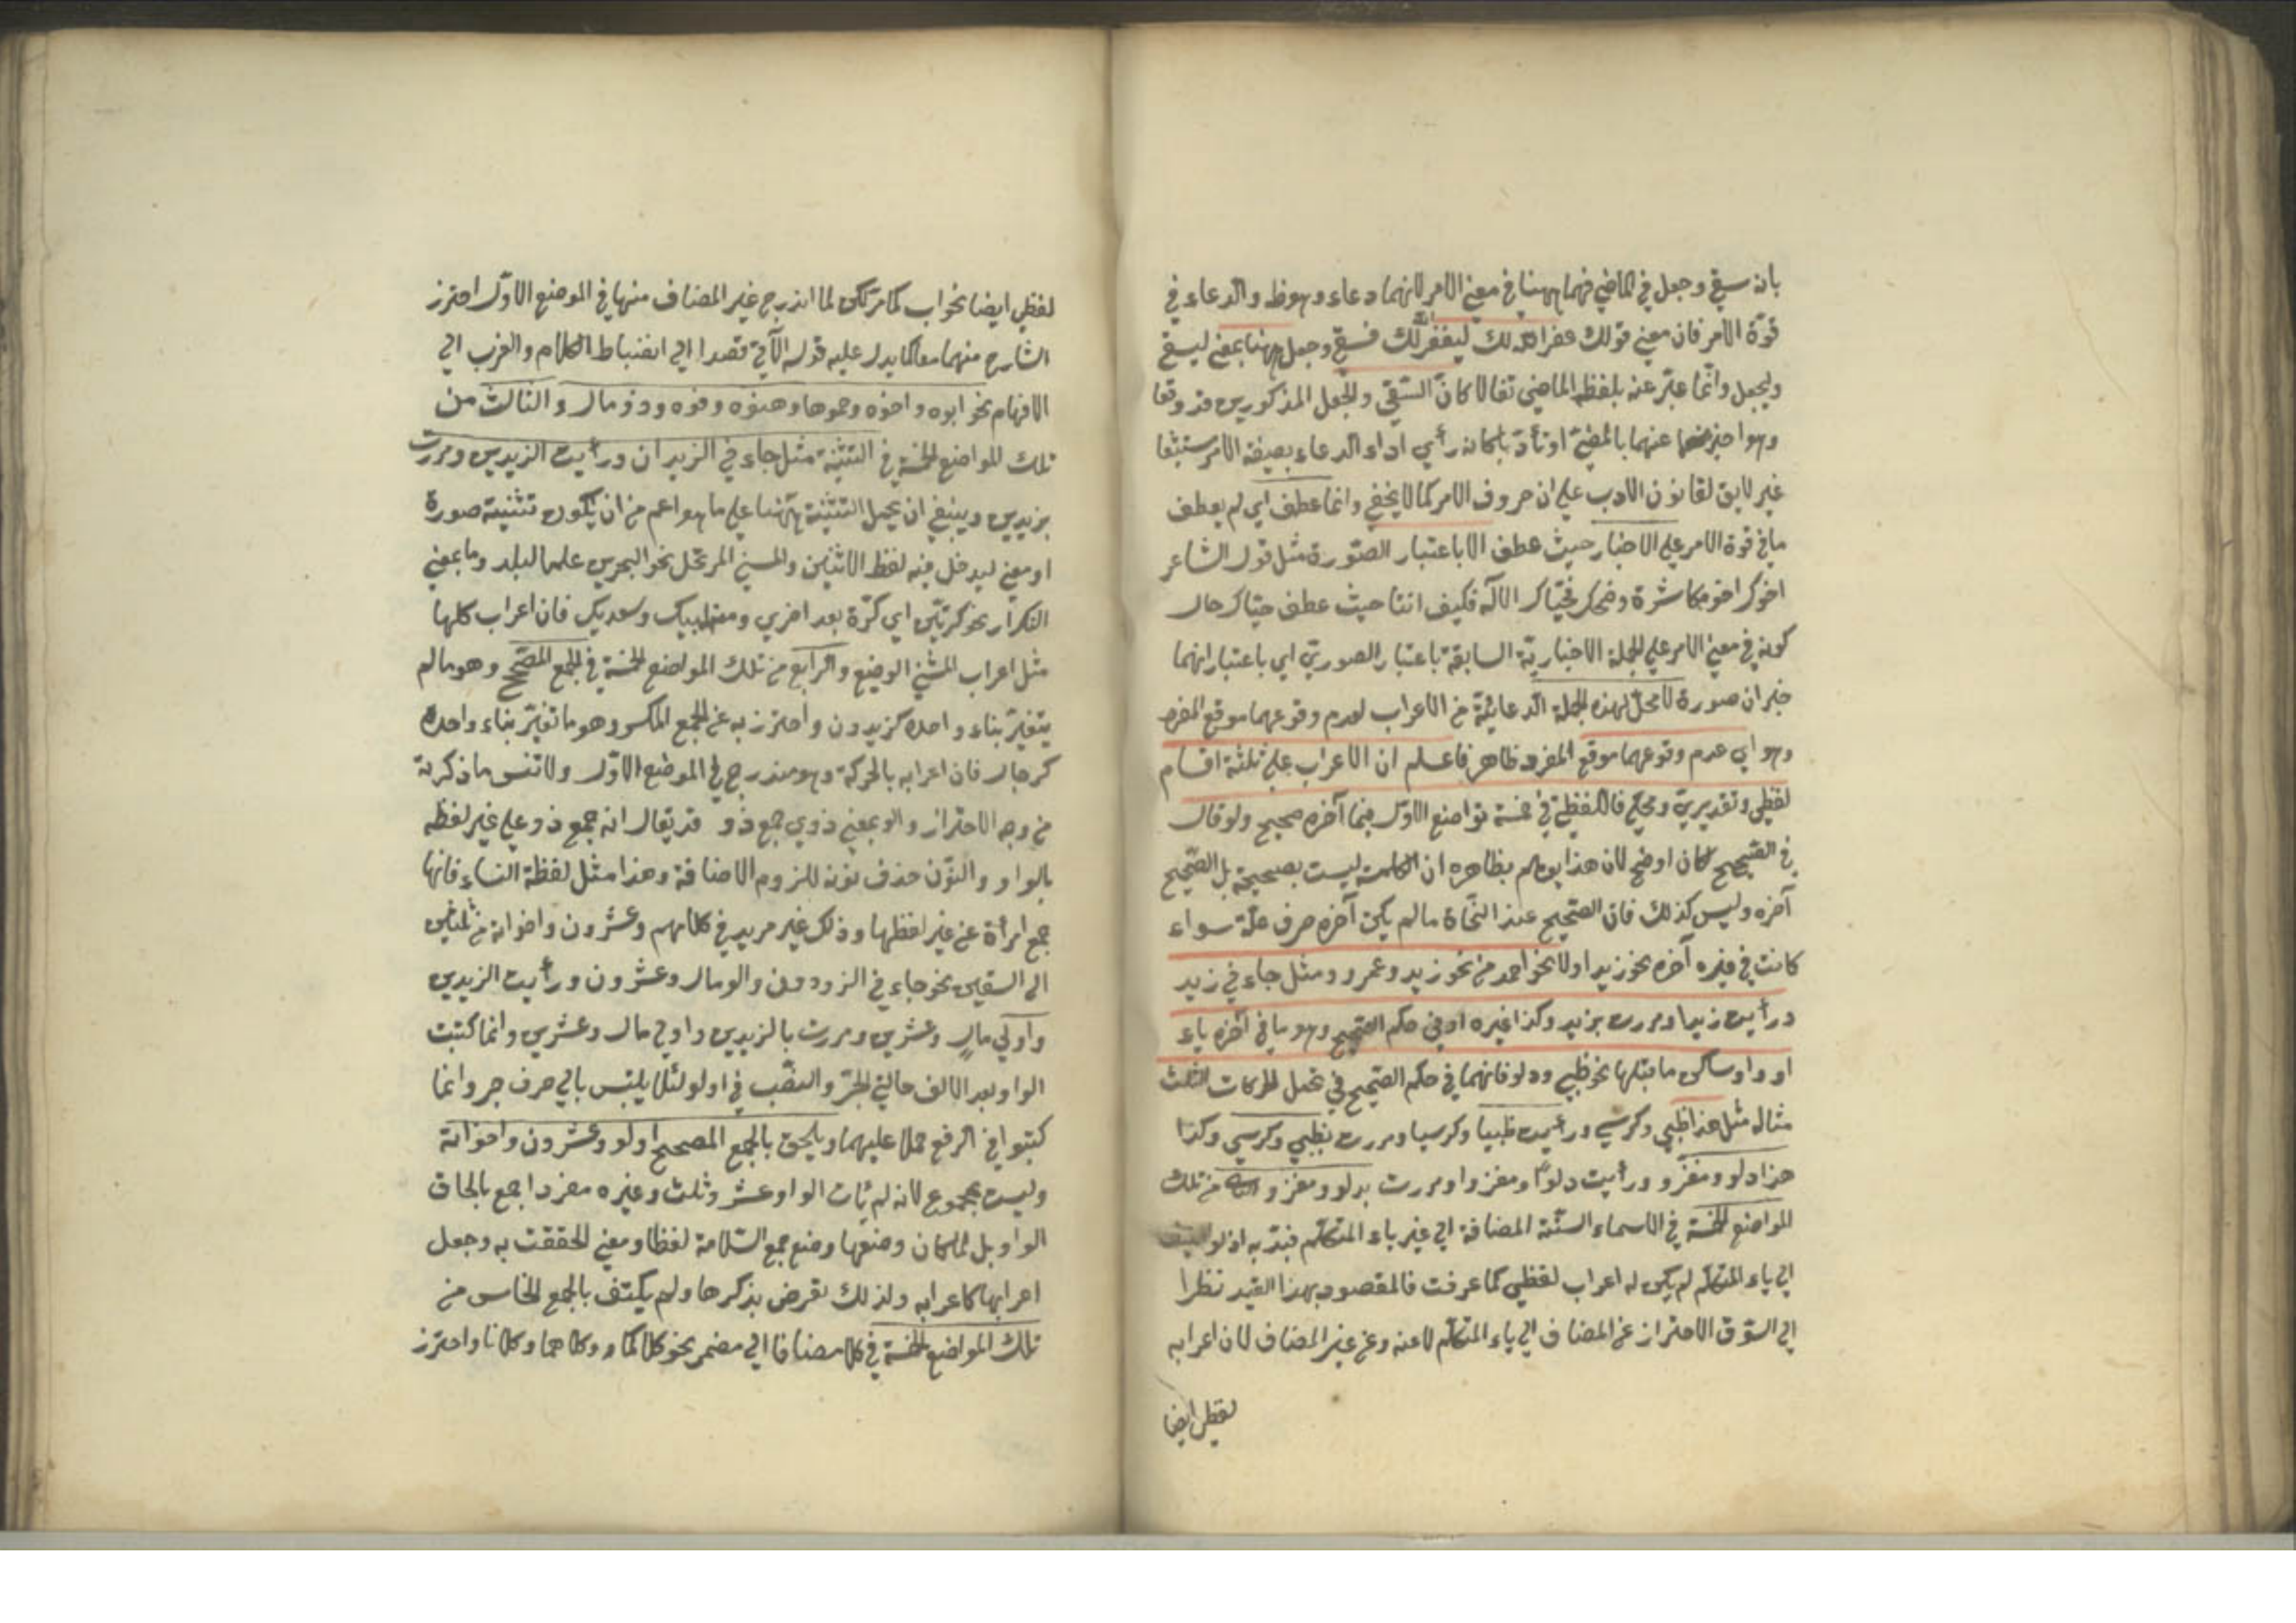 بان سقى وجعل في الماضي فهما ههنا في معنى الامر لانهما دعاء وهو ظ والدعاء في
قوة الامر فان معنى قولك غفر الله لك ليغفر الله لك فسقى وجعل ههنا بمعنى ليسق
وليجعل وانما عبر عنه بلفظ الماضي تفالا كان السقي والجعل المذكورين قد وقعا
وهو اخبر عنهما بالمضي او تأدبا كانه رأى اداء الدعاء بصيغة الامر مستبشعا
غير لايق لقانون الادب على ان حروف الامر كما لا يخفى وانما عطف اي لم يعطف
ما في قوة الامر على الاخبار حيث عطف الا باعتبار الصورة مثل قول الشاعر
اخوك اخو مكاشرة وضحك فحياك الاله فكيف انتا حيث عطف حياك حال
كونه في معنى الامر على الجملة الاخبارية السابقة باعتبار الصورتين اي باعتبار انهما
خبران صورة لا محل لهذه الجملة الدعائية من الاعراب لعدم وقوعهما موقع المفرد
وهو اي عدم وقوعهما موقع المفرد ظاهر فاعلم ان الاعراب على ثلثة اقسام
لفظي وتقديري ومحلي فاللفظي في خمسة مواضع الاول فيما آخره صحيح ولو قال
في الصحيح لكان اوضح لان هذا يوهم بظاهره ان الكلمة ليست بصحيحة بل الصحيح
آخره وليس كذلك فان الصحيح عند النحاة ما لم يكن آخره حرف علة سواء
كانت في غيره آخره نحو زيد اولا نحو احمد من نحو زيد وعمرو ومثل جاءني زيد
ورأيت زيدا ومررت بزيد وكذا غيره او في حكم الصحيح وهو ما في آخره ياء
او واو ساكن ما قبلها نحو ظبي ودلو فانهما في حكم الصحيح في تحمل الحركات الثلث
مثاله مثل هذا ظبي وكرسي ورأيت ظبيا وكرسيا ومررت بظبي وكرسي وكذا
هذا دلو ومغزو ورأيت دلوا ومغزوا ومررت بدلو ومغزو والثاني من تلك
المواضع الخمسة في الاسماء الستة المضافة الى غير ياء المتكلم قيد به اذ لو اضيف
الى ياء المتكلم لم يكن له اعراب لفظي كما عرفت فالمقصود بهذا القيد نظرا
الى السوق الاحتراز عن المضاف الى ياء المتكلم لا عنه وعن غير المضاف لان اعرابه
لفظي ايضا
لفظي ايضا نحو اب كما مر لكن لما اندرج غير المضاف منها في الموضع الاول احترز
الشارح منهما معا كما يدل عليه قوله الآتي قصدا الى انضباط الكلام والقرب الى
الافهام نحو ابوه واخوه وحموها وهنوه وفوه وذو مال والثالث من
تلك المواضع الخمسة في التثنية مثل جاءني الزيدان ورأيت الزيدين ومررت
بزيدين وينبغي ان يحمل التثنية ههنا على ما هو اعم من ان يكون تثنية صورة
او معنى ليدخل فيه لفظ الاثنين والمسمى المرتحل نحو البحرين علما لبلد وما بمعنى
التكرار نحو كرتين اي كرة بعد اخرى ومعنى لبيك وسعديك فان اعراب كلها
مثل اعراب المثنى الوضيع والرابع من تلك المواضع الخمسة في الجمع المصحح وهو ما لم
يتغير بناء واحده كزيدون واحترز به عن الجمع المكسر وهو ما تغير بناء واحده
كرجال فان اعرابه بالحركة وهو مندرج في الموضع الاول ولا تنس ما ذكرته
من وجه الاحتراز والو بمعنى ذوي جمع ذو قد يقال انه جمع ذو على غير لفظه
بالواو والنون حذف نونه للزوم الاضافة وهذا مثل لفظة النساء فانها
جمع امرأة عن غير لفظها وذلك غير مريد في كلامهم وعشرون واخواته من ثلثين
الى التسعين نحو جاءني الزيدون والو مال وعشرون ورأيت الزيدين
واولي مال وعشرين ومررت بالزيدين واولي مال وعشرين وانما كتبت
الواو بعد الالف حالتي الجر والنصب في اولو لئلا يلتبس بالى حرف جر وانما
كتبوا في الرفع حملا عليهما ويلحق بالجمع المصحح اولو وعشرون واخواته
وليست بمجموع لانه لم يأت الواو عشر وثلث وغيره مفردا جمع بالحاق
الواو بل لما كان وضعها وضع جمع السلامة لفظا ومعنى الحقت به وجعل
اعرابها كاعرابه ولذلك تعرض بذكرها ولم يكتف بالجمع الخامس من
تلك المواضع الخمسة في كلا مضافا الى مضمر نحو كلاكما وكلاهما وكلانا واحترز